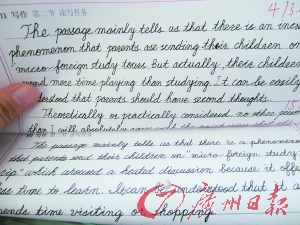 II 写作 第二节 读写任务
4/3.
The passage mainly tells us that there is an
phenomenon that parents are sending their children on
"micro-foreign study tours but actually, their children
spend more time playing than studying. It can be easily
understood that parents should have second thoughts.
15
Theoretically or practically considered, no other
than I will absolutely
The passage mainly tells us that there is a phenomenon
that parents send their children on "micro-foreign study
which aroused a heated discussion because it
time to learn. It can be understood that it
spends time visiting or shopping
广州日报